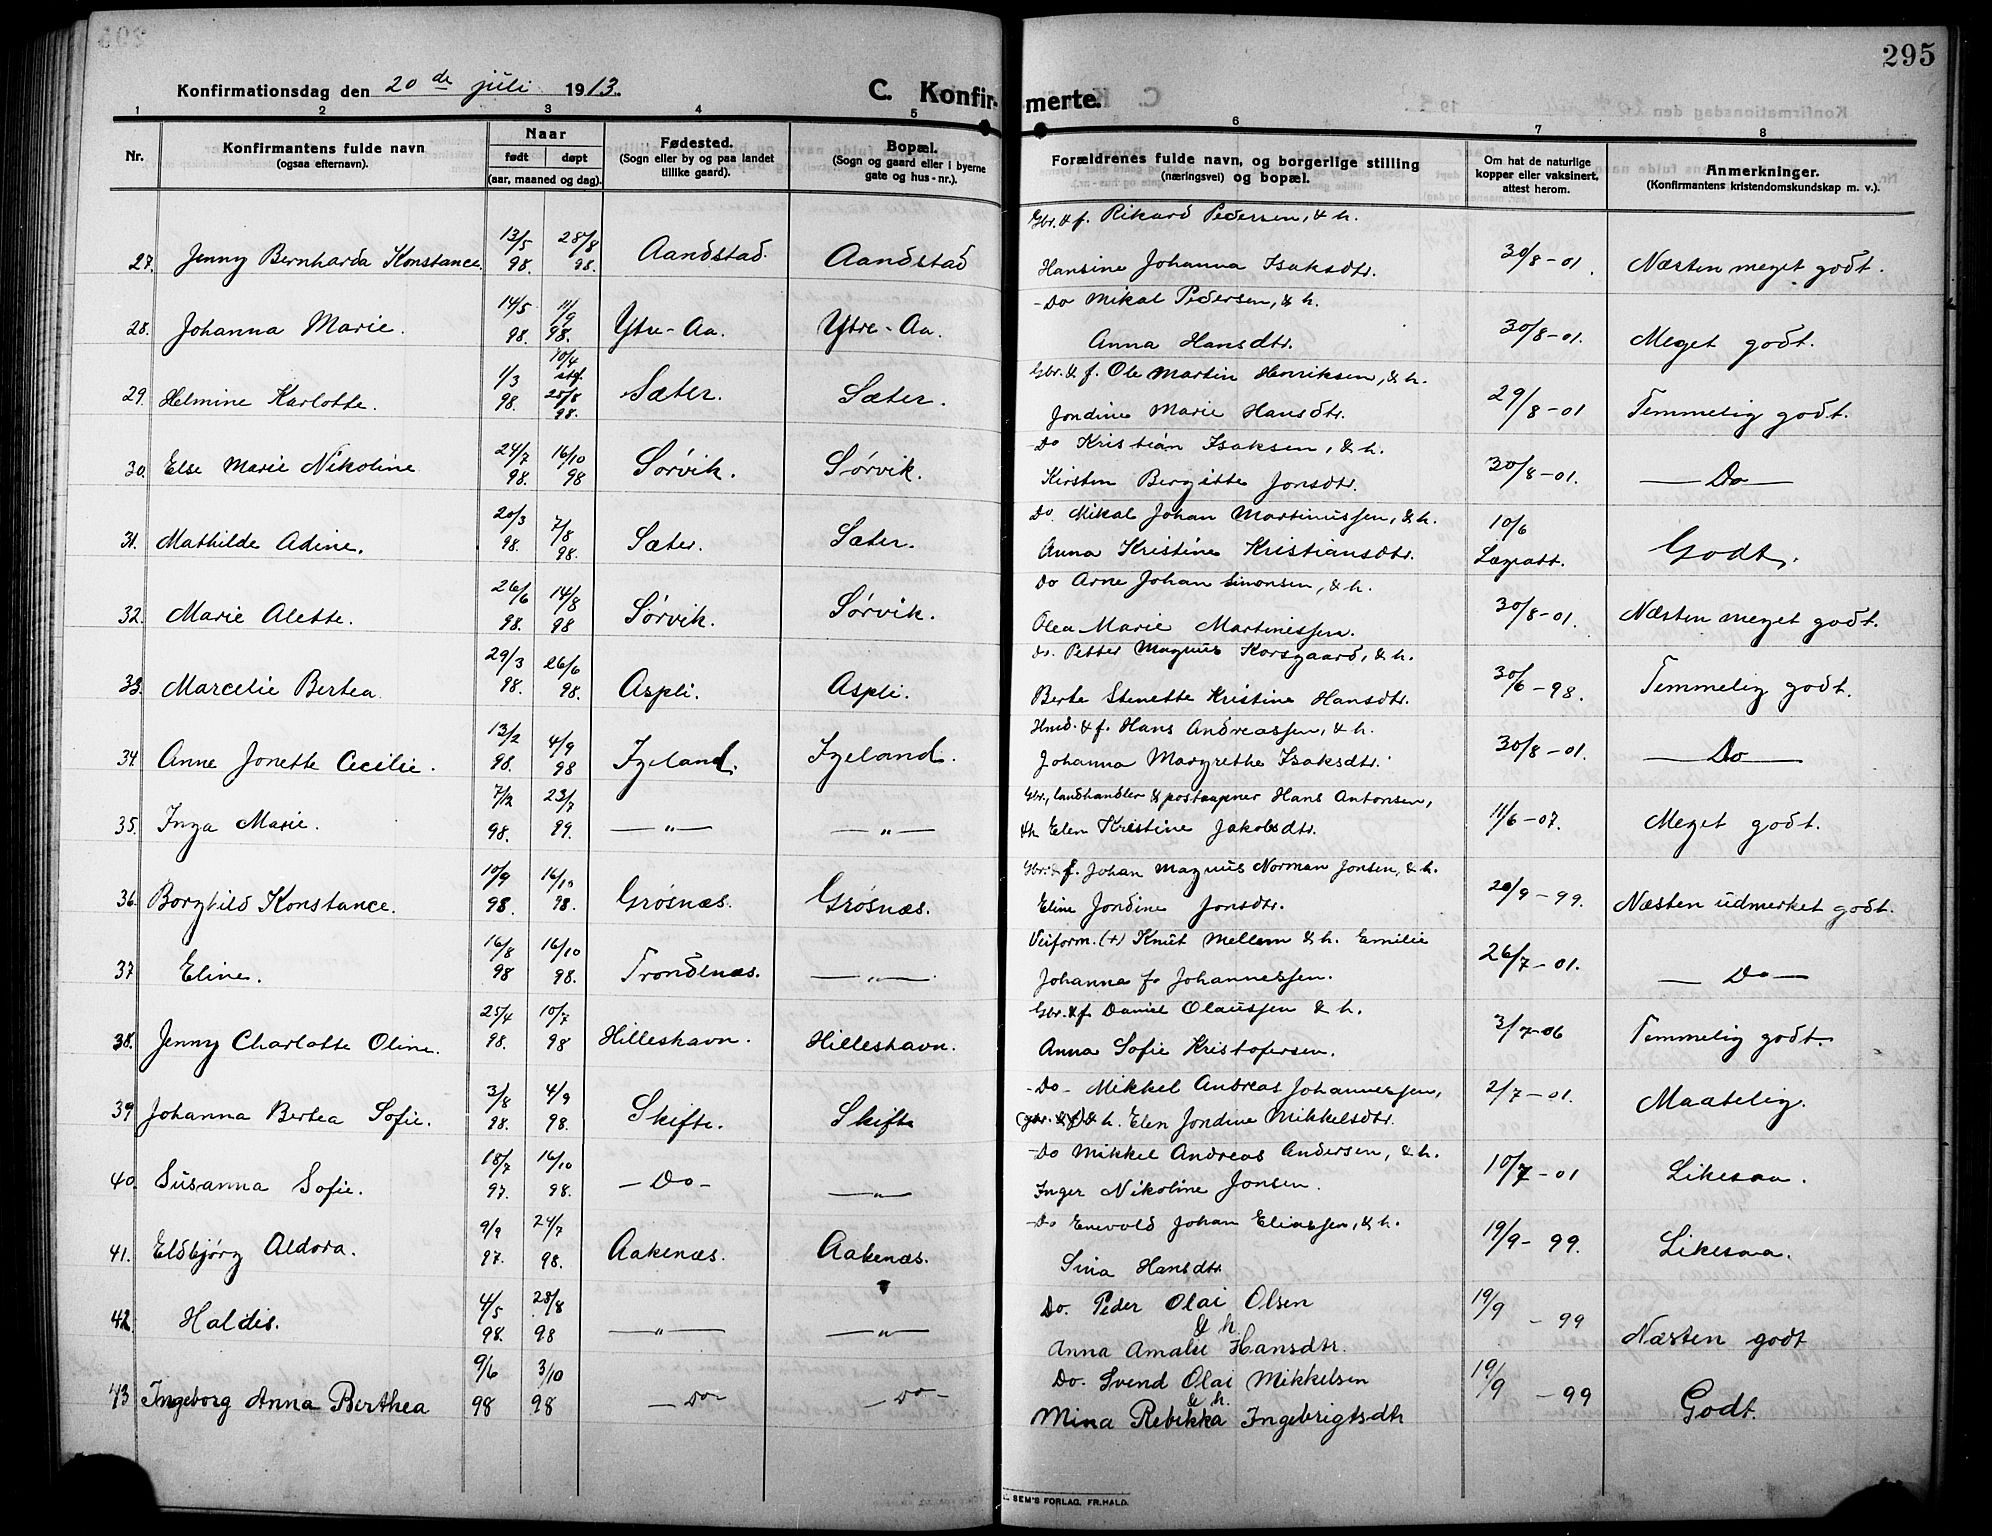 295
Konfirmationsdag den 20de juli 1913.
C. Konfirmerte.
1 2 3 4 5 6 7 8
Nr.
Konfirmantens fulde navn
(ogsaa efternavn).
Naar
født døpt
(aar, maaned og dag).
Fødested.
(Sogn eller by og paa landet
tillike gaard).
Bopæl.
(Sogn og gaard eller i byerne
gate og hus-nr.).
Forældrenes fulde navn, og borgerlige stilling
(næringsvei) og bopæl.
Om hat de naturlige
kopper eller vaksinert,
attest herom.
Anmerkninger.
(Konfirmantens kristendomskundskap m. v.).
Gbr. & f. Rikard Pedersen, & h.
27. Jenny Bernharda Konstance. 13/5 98. 28/8 98. Aandstad. Aandstad Hansine Johanna Isaksdtr. 30/8-01. Næsten meget godt.
Do Mikal Pedersen, & h.
28. Johanna Marie. 14/5 98. 11/9 98. Ytre-Aa. Ytre-Aa. Anna Hansdtr. 30/8-01. Meget godt.
Gbr. & f. Ole Martin Henriksen, & h.
29. Helmine Karlotte. 1/3 98. 10/4 stf. 28/8 98. Sæter. Sæter. Jondine Marie Hansdtr. 29/8-01 Temmelig godt.
Do Kristian Isaksen, & h.
30. Else Marie Nikoline 24/7 98. 16/10 98 Sørvik. Sørvik. Kirsten Bergitte Jonsdtr. 30/8-01. Do
Do. Mikal Johan Martinussen, & h.
31. Mathilde Adine. 20/3 98. 7/8 98. Sæter. Sæter. Anna Kristine Kristiansdtr. 10/6 Lægeatt. Godt.
Do Arne Johan Simonsen, & h.
32. Marie Alette. 26/6 98. 14/8 98 Sørvik. Sørvik. Olea Marie Martinissen. 30/8-01. Næsten meget godt.
Do. Petter Magnus Korsgaard, & h.
33. Marcelie Bertea 29/3 98. 26/6 98. Aspli. Aspli. Berte Stenette Kristine Hansdtr. 30/6-98. Temmelig godt.
Hmd. & f. Hans Andreassen, & h.
34. Anne Jonette Cecilie. 13/2 98. 4/9 98 Igeland. Igeland. Johanna Margrethe Isaksdtr. 30/8-01. Do
Gbr., landhandler & postaapner Hans Antonsen,
35. Inga Marie. 7/12 98. 23/7 99. — " — — " — & h Elen Kristine Jakobsdtr. 11/6-07. Meget godt.
Gbr. & f. Johan Magnus Norman Jonsen, & h.
36. Borghild Konstance. 10/9 98. 16/10 98. Grøsnæs. Grøsnæs. Eline Jondine Jonsdtr. 20/9-99. Næsten udmerket godt.
Veiform. (+) Knut Mellem & h. Emilie
37 Eline. 16/8 98 16/10 98. Trondenæs. — " — Johanna f. Johannessen. 26/7-01. Do
Gbr. & f. Daniel Olaussen & h.
38. Jenny Charlotte Oline. 25/4 98. 10/7 98 Hilleshavn. Hilleshavn. Anna Sofie Kristofersen. 3/7-06 Temmelig godt.
Do Mikkel Andreas Johannessen,
39 Johanna Bertea Sofie. 3/8 98. 4/9 98. Skifte. Skifte (gbr. & f) & h. Elen Jondine Mikkelsdtr. 2/7-01. Maatelig.
Do Mikkel Andreas Andersen, & h.
40. Susanna Sofie. 18/7 97. 16/10 98. Do — " — Inger Nikoline Jonsen. 10/7-01 Likesaa.
Do Enevold Johan Eliassen, & h.
41. Eldbjørg Aldora. 9/9 97. 24/7 98. Aakenæs. Aakenæs. Sina Hansdtr. 19/9-99. Likesaa.
Do. Peder Olai Olsen
& h.
42. Haldis. 4/5 98. 28/8 98 — " — — " — Anna Amalie Hansdtr. 19/9-99 Næsten godt
Do. Svend Olai Mikkelsen
& h.
43 Ingeborg Anna Berthea 9/6 98 3/10 98 Do Do Mina Rebekka Ingebrigtsdtr 19/9-99 Godt.
SEM'S FORLAG, FR.HALD.